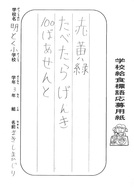 学校給食標語応募用紙
赤黄緑
たべたらげんき
100ぱあせんと
学校名
小学校
学年
年
組
名前